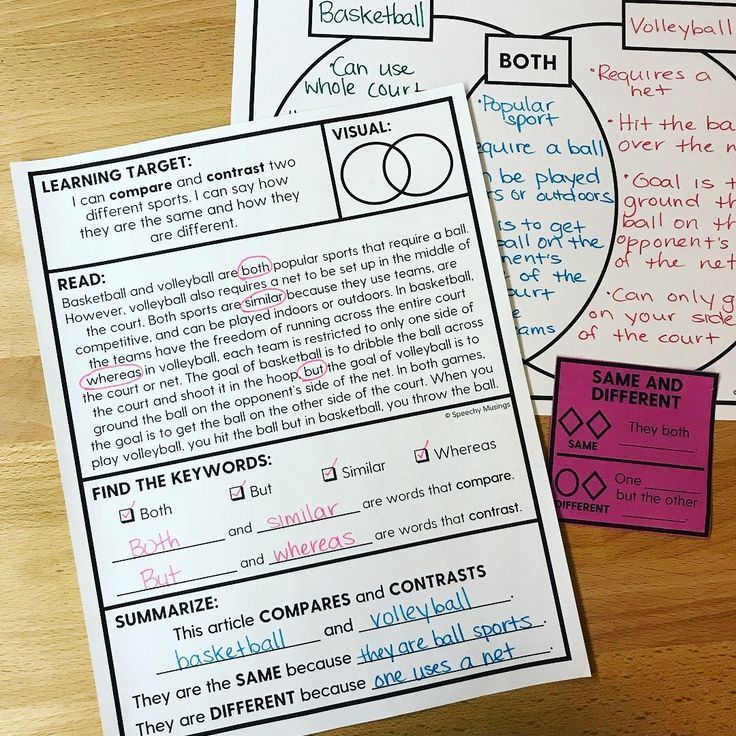 Basketball
Volleyball
BOTH
•Can use
whole court
•Popular
sport
quire a ball
be played
s or outdoors
is to get
ball on the
of the
ourt
•Requires a
net
•Hit the ba
over the
•Goal is t
ground th
ball on th
opponent's
of the net
•Can only g
on your side
of the court
LEARNING TARGET:
I can compare and contrast two
different sports. I can say how
they are the same and how they
are different.
VISUAL:
READ:
Basketball and volleyball are both popular sports that require a ball.
However, volleyball also requires a net to be set up in the middle of
the court. Both sports are similar because they use teams, are
competitive, and can be played indoors or outdoors. In basketball,
the teams have the freedom of running across the entire court
whereas in volleyball, each team is restricted to only one side of
the court or net. The goal of basketball is to dribble the ball across
the court and shoot it in the hoop, but the goal of volleyball is to
ground the ball on the opponent's side of the net. In both games,
the goal is to get the ball on the other side of the court. When you
play volleyball, you hit the ball but in basketball, you throw the ball.
© Speechy Musings
FIND THE KEYWORDS:
Both But Similar Whereas
Both and similar are words that compare.
But and whereas are words that contrast.
SUMMARIZE:
This article COMPARES and CONTRASTS
basketball and volleyball.
They are the SAME because they are ball sports.
They are DIFFERENT because one uses a net.
SAME AND
DIFFERENT
They both
SAME
One
but the other
DIFFERENT